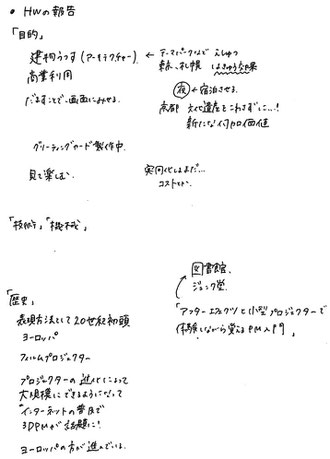 • HWの報告
「目的」
建物うつす(アーキテクチャー) ← テーマパークなど
東京、札幌
商業利用
夜 ← 宿泊させる
だますことで、画面にみせる。
京都 文化遺産をこわさずに…!
新たな付加価値
グリーティングカード製作中
見て楽しむ。
実用化はまだ…
コストが
「技術」「機械」
図書館
ジュンク堂
「アフターエフェクツと小型プロジェクターで
体験しながら覚えるPM入門」
「歴史」
表現方法として20世紀初頭
ヨーロッパ
フィルムプロジェクター
プロジェクターの進化によって
大規模にできるようになって
インターネットの普及で
3DPMが話題に!
ヨーロッパの方が進んでいる。